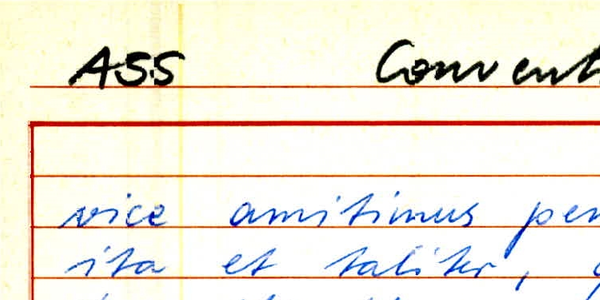 ASS Convent
vice amitimus per
ita et taliter,